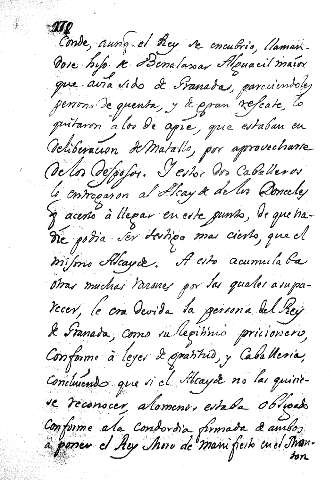 Conde, aunq. el Rey se encubrio, llaman-
dose hijo de Benalaxar Alguacil maior
que avia sido de Granada, pareciendoles
persona de quenta, y de gran rescate, lo
quitaron a los de apie, que estaban en
deliberacion de Matalle, por aprovecharse
de los despojos. Y estos dos Caballeros
lo entregaron al Alcayde de los Donceles
q acerto à llegar en este punto, de que na-
die podia ser testigo mas cierto, que el
mismo Alcayde. A esto acumulaba
otras muchas razones por las quales a su pa-
recer, le era devida la persona del Rey
de Granada, como su legitimo pricionero,
conforme à leyes de gratitud, y Caballeria,
concluiendo que si el Alcayde no las quisie-
se reconocer, alomenos estaba obligado
conforme a la concordia firmada de ambos
à poner el Rey Moro de manifiesto en el